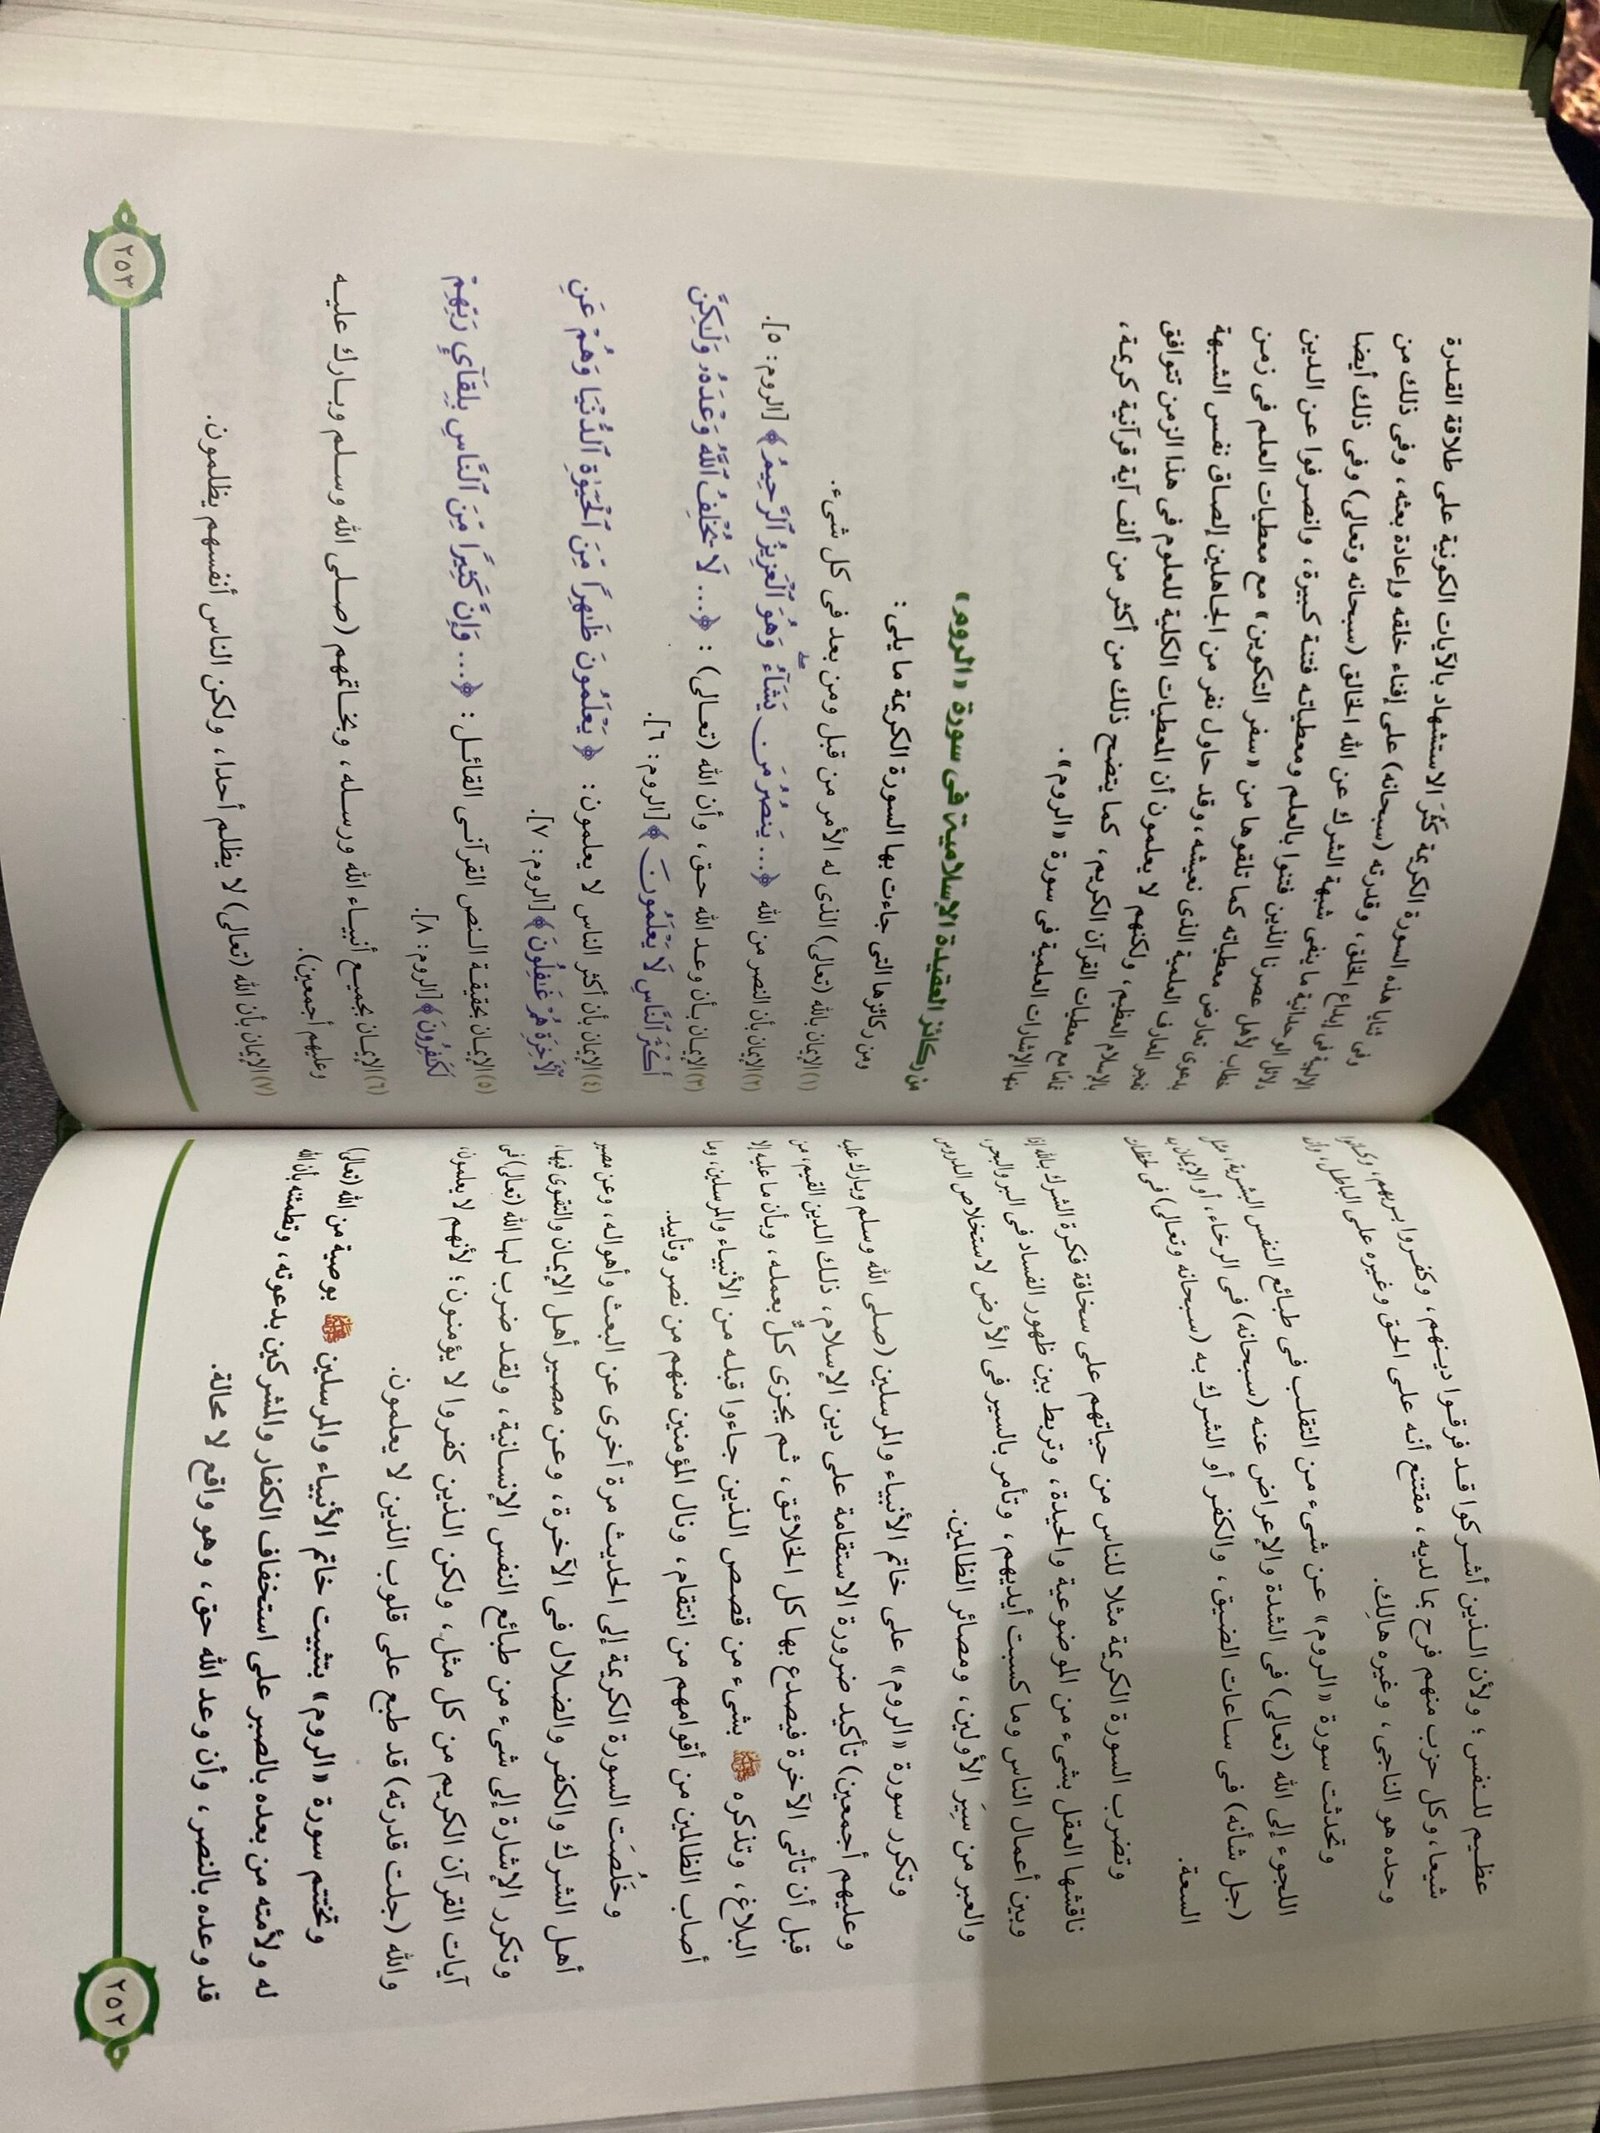 عظيم للنفس؛ ولأن الذين أشركوا قد فرقوا دينهم، وكفروا بربهم، وكانوا
شيعا، وكل حزب منهم فرح بما لديه، مقتنع أنه على الحق وغيره على الباطل، وأنه
وحده هو الناجى، وغيره هالِك.
وتحدثت سورة «الروم» عن شىء من التقلب فى طبائع النفس البشرية، مثل
اللجوء إلى الله (تعالى) فى الشدة والإعراض عنه (سبحانه) فى الرخاء، أو الإيمان به
(جل شأنه) فى ساعات الضيق، والكفر أو الشرك به (سبحانه وتعالى) فى لحظات
السعة.
وتضرب السورة الكريمة مثلا للناس من حياتهم على سخافة فكرة الشرك بالله إذا
ناقشها العقل بشىء من الموضوعية والحيدة، وتربط بين ظهور الفساد فى البر والبحر،
وبين أعمال الناس وما كسبت أيديهم، وتأمر بالسير فى الأرض لاستخلاص الدروس
والعبر من سِيَر الأولين، ومصائر الظالمين.
وتكرر سورة «الروم» على خاتم الأنبياء والمرسلين (صلى الله وسلم وبارك عليه
وعليهم أجمعين) تأكيد ضرورة الاستقامة على دين الإسلام، ذلك الدين القيم، من
قبل أن تأتى الآخرة فيصدع بها كل الخلائق، ثم يجزى كلٌّ بعمله، وبأن ما عليه إلا
البلاغ، وتذكره ﷺ بشىء من قصص الذين جاءوا قبله من الأنبياء والمرسلين، وما
أصاب الظالمين من أقوامهم من انتقام، ونال المؤمنين منهم من نصر وتأييد.
وخَلُصَت السورة الكريمة إلى الحديث مرة أخرى عن البعث وأهواله، وعن مصير
أهل الشرك والكفر والضلال فى الآخرة، وعن مصير أهل الإيمان والتقوى فيها،
وتكرر الإشارة إلى شىء من طبائع النفس الإنسانية، ولقد ضرب لها الله (تعالى) فى
آيات القرآن الكريم من كل مثل، ولكن الذين كفروا لا يؤمنون؛ لأنهم لا يعلمون،
والله (جلت قدرته) قد طبع على قلوب الذين لا يعلمون.
وتختتم سورة «الروم» بتثبيت خاتم الأنبياء والمرسلين ﷺ بوصية من الله (تعالى)
له ولأمته من بعده بالصبر على استخفاف الكفار والمشركين بدعوته، وتطمئنه بأن الله
قد وعده بالنصر، وأن وعد الله حق، وهو واقع لا محالة.
٢٥٢
وفى ثنايا هذه السورة الكريمة كَثُرَ الاستشهاد بالآيات الكونية على طلاقة القدرة
الإلهية فى إبداع الخلق، وقدرته (سبحانه) على إفناء خلقه وإعادة بعثه، وفى ذلك من
دلائل الوحدانية ما ينفى شبهة الشرك عن الله الخالق (سبحانه وتعالى) وفى ذلك أيضا
خطاب لأهل عصرنا الذين فتنوا بالعلم ومعطياته فتنة كبيرة، وانصرفوا عن الدين
بدعوى تعارض معطياته كما تلقوها من «سفر التكوين» مع معطيات العلم فى زمن
تفجر المعارف العلمية الذى نعيشه، وقد حاول نفر من الجاهلين إلصاق نفس الشبهة
بالإسلام العظيم، ولكنهم لا يعلمون أن المعطيات الكلية للعلوم فى هذا الزمن تتوافق
تمامًا مع معطيات القرآن الكريم، كما يتضح ذلك من أكثر من ألف آية قرآنية كريمة،
منها الإشارات العلمية فى سورة «الروم».
من ركائز العقيدة الإسلامية فى سورة «الروم»
ومن ركائزها التى جاءت بها السورة الكريمة ما يلى:
(١) الإيمان بالله (تعالى) الذى له الأمر من قبل ومن بعد فى كل شىء.
(٢) الإيمان بأن النصر من الله ﴿... يَنصُرُ مَن يَشَآءُ ۖ وَهُوَ ٱلْعَزِيزُ ٱلرَّحِيمُ﴾ [الروم: ٥].
(٣) الإيمان بأن وعد الله حق، وأن الله (تعالى): ﴿... لَا يُخْلِفُ ٱللَّهُ وَعْدَهُۥ وَلَٰكِنَّ
أَكْثَرَ ٱلنَّاسِ لَا يَعْلَمُونَ﴾ [الروم: ٦].
(٤) الإيمان بأن أكثر الناس لا يعلمون: ﴿يَعْلَمُونَ ظَٰهِرًا مِّنَ ٱلْحَيَوٰةِ ٱلدُّنْيَا وَهُمْ عَنِ
ٱلْءَاخِرَةِ هُمْ غَٰفِلُونَ﴾ [الروم: ٧].
(٥) الإيمان بحقيقة النص القرآنى القائل: ﴿... وَإِنَّ كَثِيرًا مِّنَ ٱلنَّاسِ بِلِقَآئِ رَبِّهِمْ
لَكَٰفِرُونَ﴾ [الروم: ٨].
(٦) الإيمان بجميع أنبياء الله ورسله، وبخاتمهم (صلى الله وسلم وبارك عليه
وعليهم أجمعين).
(٧) الإيمان بأن الله (تعالى) لا يظلم أحدا، ولكن الناس أنفسهم يظلمون.
٢٥٣